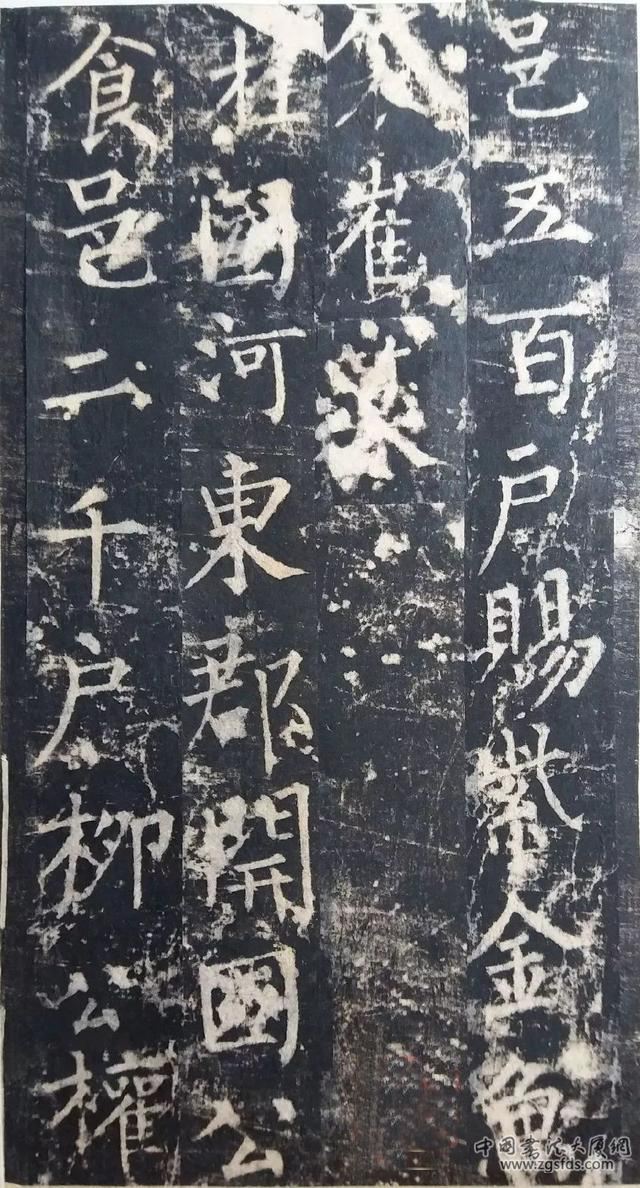 邑五百户賜紫金魚
袋崔
柱國河東郡開國公
食邑二千户柳公權
中国书法大厦网
www.zgsfds.com